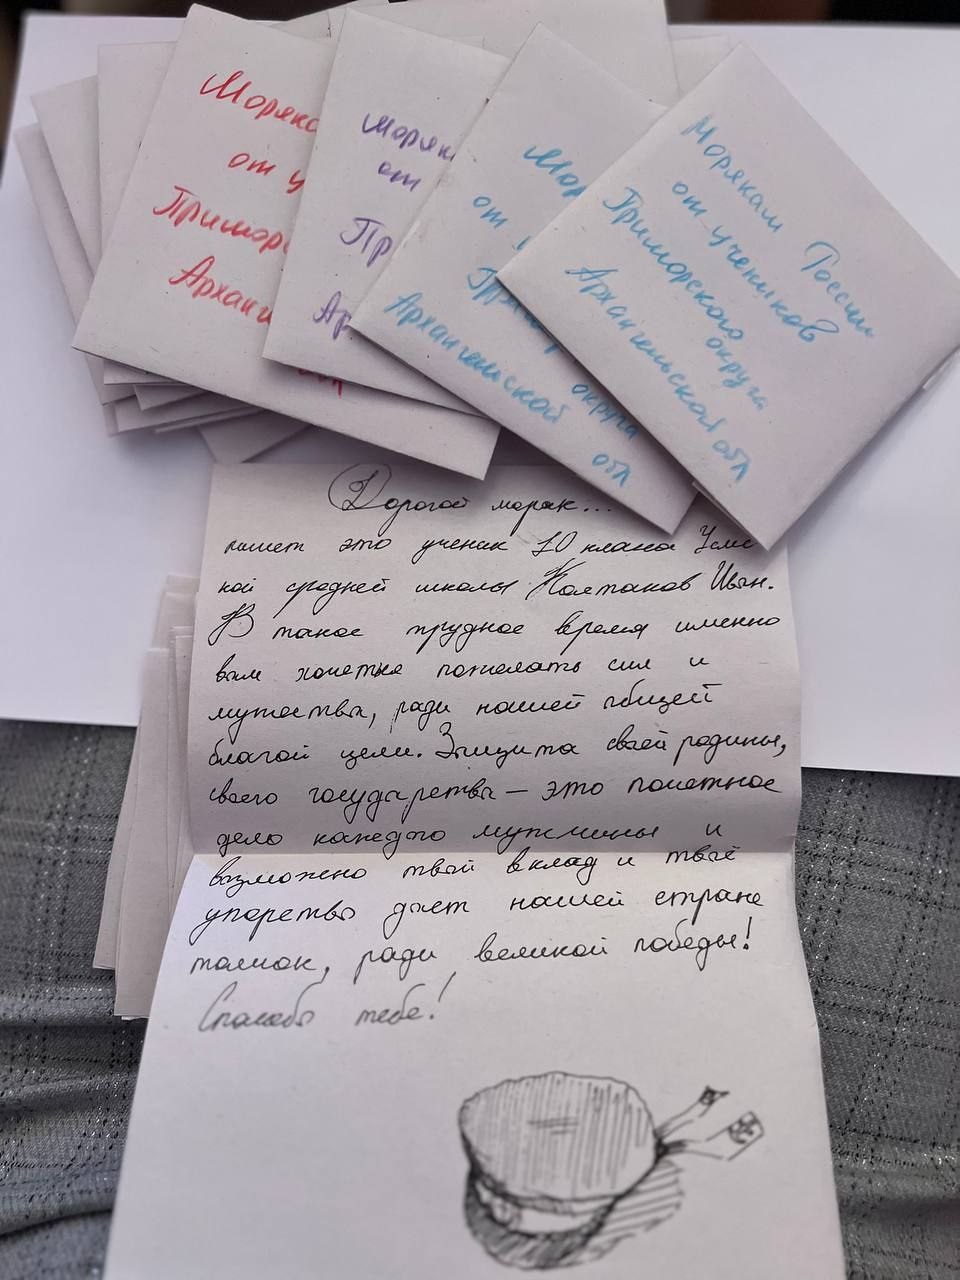 Моряк
от у
Примор
Арханг
обл
Моряк
от
Пр
Ар
Мор
от
Пр
округа
Архангельской
обл
Морякам России
от учеников
Приморского
округа
Архангельской обл
Дорогой моряк...
пишет это ученик 10 класса
кой средней школы Иван.
В такое трудное время именно
вам хочется пожелать сил и
мужества, ради нашей общей
благой цели. Защита своей родины,
своего государства — это почетное
дело каждого мужчины и
возможно твой вклад и твоё
упорство дает нашей стране
толчок, ради великой победы!
Спасибо тебе!